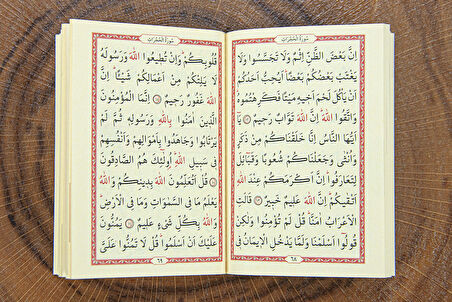 سُورَةُ الْحُجُرَاتِ
اِنَّ بَعْضَ الظَّنِّ اِثْمٌ وَلَا تَجَسَّسُوا وَلَا
يَغْتَبْ بَعْضُكُمْ بَعْضًا اَيُحِبُّ اَحَدُكُمْ
اَنْ يَأْكُلَ لَحْمَ اَخِيهِ مَيْتًا فَكَرِهْتُمُوهُ
وَاتَّقُوا اللّٰهَ اِنَّ اللّٰهَ تَوَّابٌ رَحِيمٌ يَا
اَيُّهَا النَّاسُ اِنَّا خَلَقْنَاكُمْ مِنْ ذَكَرٍ
وَاُنْثٰى وَجَعَلْنَاكُمْ شُعُوبًا وَقَبَائِلَ
لِتَعَارَفُوا اِنَّ اَكْرَمَكُمْ عِنْدَ اللّٰهِ
اَتْقٰيكُمْ اِنَّ اللّٰهَ عَلِيمٌ خَبِيرٌ قَالَتِ
الْاَعْرَابُ اٰمَنَّا قُلْ لَمْ تُؤْمِنُوا وَلٰكِنْ
قُولُوا اَسْلَمْنَا وَلَمَّا يَدْخُلِ الْاِيمَانُ فِى
٦٨
سُورَةُ الْحُجُرَاتِ
قُلُوبِكُمْ وَاِنْ تُطِيعُوا اللّٰهَ وَرَسُولَهُ
لَا يَلِتْكُمْ مِنْ اَعْمَالِكُمْ شَيْئًا اِنَّ
اللّٰهَ غَفُورٌ رَحِيمٌ اِنَّمَا الْمُؤْمِنُونَ
الَّذِينَ اٰمَنُوا بِاللّٰهِ وَرَسُولِهِ ثُمَّ لَمْ
يَرْتَابُوا وَجَاهَدُوا بِاَمْوَالِهِمْ وَاَنْفُسِهِمْ
فِى سَبِيلِ اللّٰهِ اُولٰئِكَ هُمُ الصَّادِقُونَ
قُلْ اَتُعَلِّمُونَ اللّٰهَ بِدِينِكُمْ وَاللّٰهُ
يَعْلَمُ مَا فِى السَّمٰوَاتِ وَمَا فِى الْاَرْضِ
وَاللّٰهُ بِكُلِّ شَىْءٍ عَلِيمٌ يَمُنُّونَ
عَلَيْكَ اَنْ اَسْلَمُوا قُلْ لَا تَمُنُّوا عَلَىَّ
٦٩